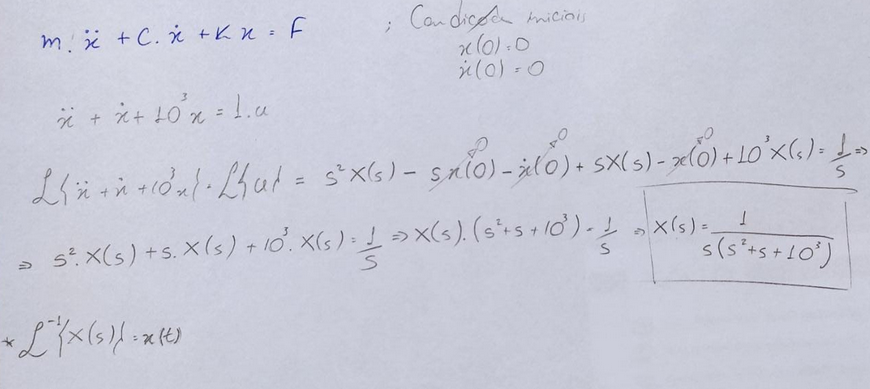 m.ẍ + C.ẋ + K x = F ; Condições iniciais
x(0)=0
ẋ(0)=0
ẍ + ẋ + 10³x = 1.u
ℒ{ẍ + ẋ + 10³x} = ℒ{u} = s²X(s) - sx(0)→0 - ẋ(0)→0 + sX(s) - x(0)→0 + 10³X(s) = 1/s ⇒
⇒ s².X(s) + s.X(s) + 10³.X(s) = 1/s ⇒ X(s).(s²+s+10³) = 1/s ⇒ X(s) = 1/(s(s²+s+10³))
* ℒ⁻¹{X(s)} = x(t)